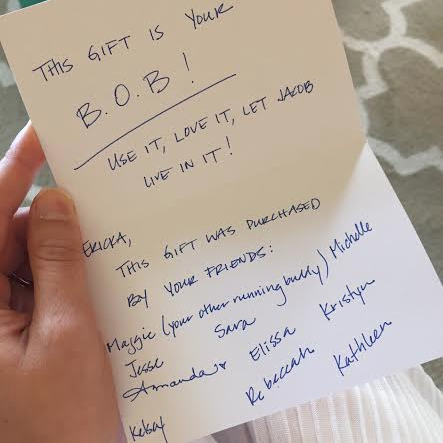 THIS GIFT IS YOUR
B.O.B!
USE IT, LOVE IT, LET JACOB
LIVE IN IT!
ERICKA,
THIS GIFT WAS PURCHASED
BY YOUR FRIENDS:
Maggie (your other running buddy) Michelle
Jesse Sara Kristyn
Amanda♥ Elissa
Kelsey Rebeccah Kathleen